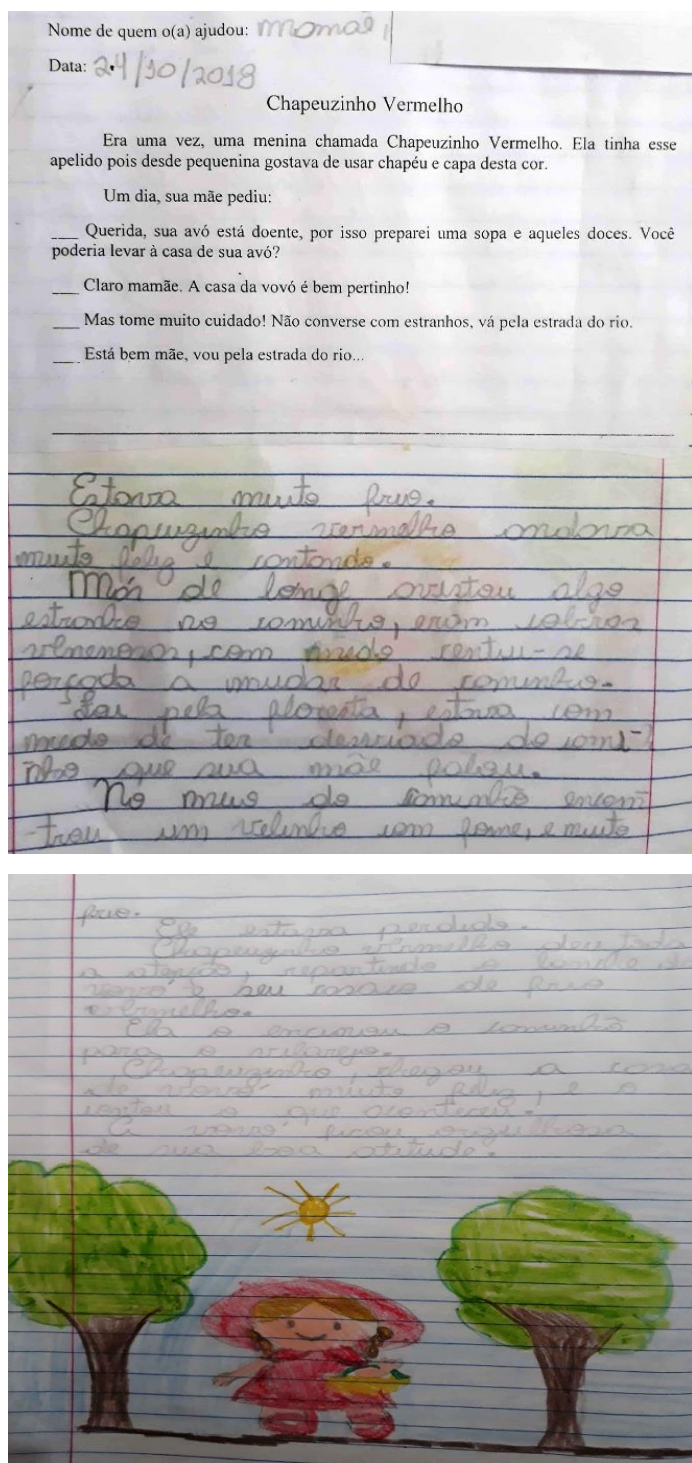 Nome de quem o(a) ajudou: mamãe
Data: 24/10/2018
Chapeuzinho Vermelho
Era uma vez, uma menina chamada Chapeuzinho Vermelho. Ela tinha esse
apelido pois desde pequenina gostava de usar chapéu e capa desta cor.
Um dia, sua mãe pediu:
___ Querida, sua avó está doente, por isso preparei uma sopa e aqueles doces. Você
poderia levar à casa de sua avó?
___ Claro mamãe. A casa da vovó é bem pertinho!
___ Mas tome muito cuidado! Não converse com estranhos, vá pela estrada do rio.
___ Está bem mãe, vou pela estrada do rio...
Estava muito frio.
Chapeuzinho vermelho andava
muito feliz e cantando.
Mas de longe avistou algo
estranho no caminho, eram cobras
venenosas, com medo sentiu-se
forçada a mudar de caminho.
Foi pela floresta, estava com
medo de ter desviado do cami-
nho que sua mãe falou.
No meio do caminho encon
-trou um velinho com fome, e muito
frio.
Ele estava perdido.
Chapeuzinho vermelho deu toda
a atenção, repartindo o lanche da
vovó e seu casaco de frio
vermelho.
Ela o encinou o caminho
para o vilarejo.
Chapeuzinho, chegou a casa
de vovó muito feliz, e a
contou o que aconteceu.
A vovó ficou orgulhosa
de sua boa atitude.